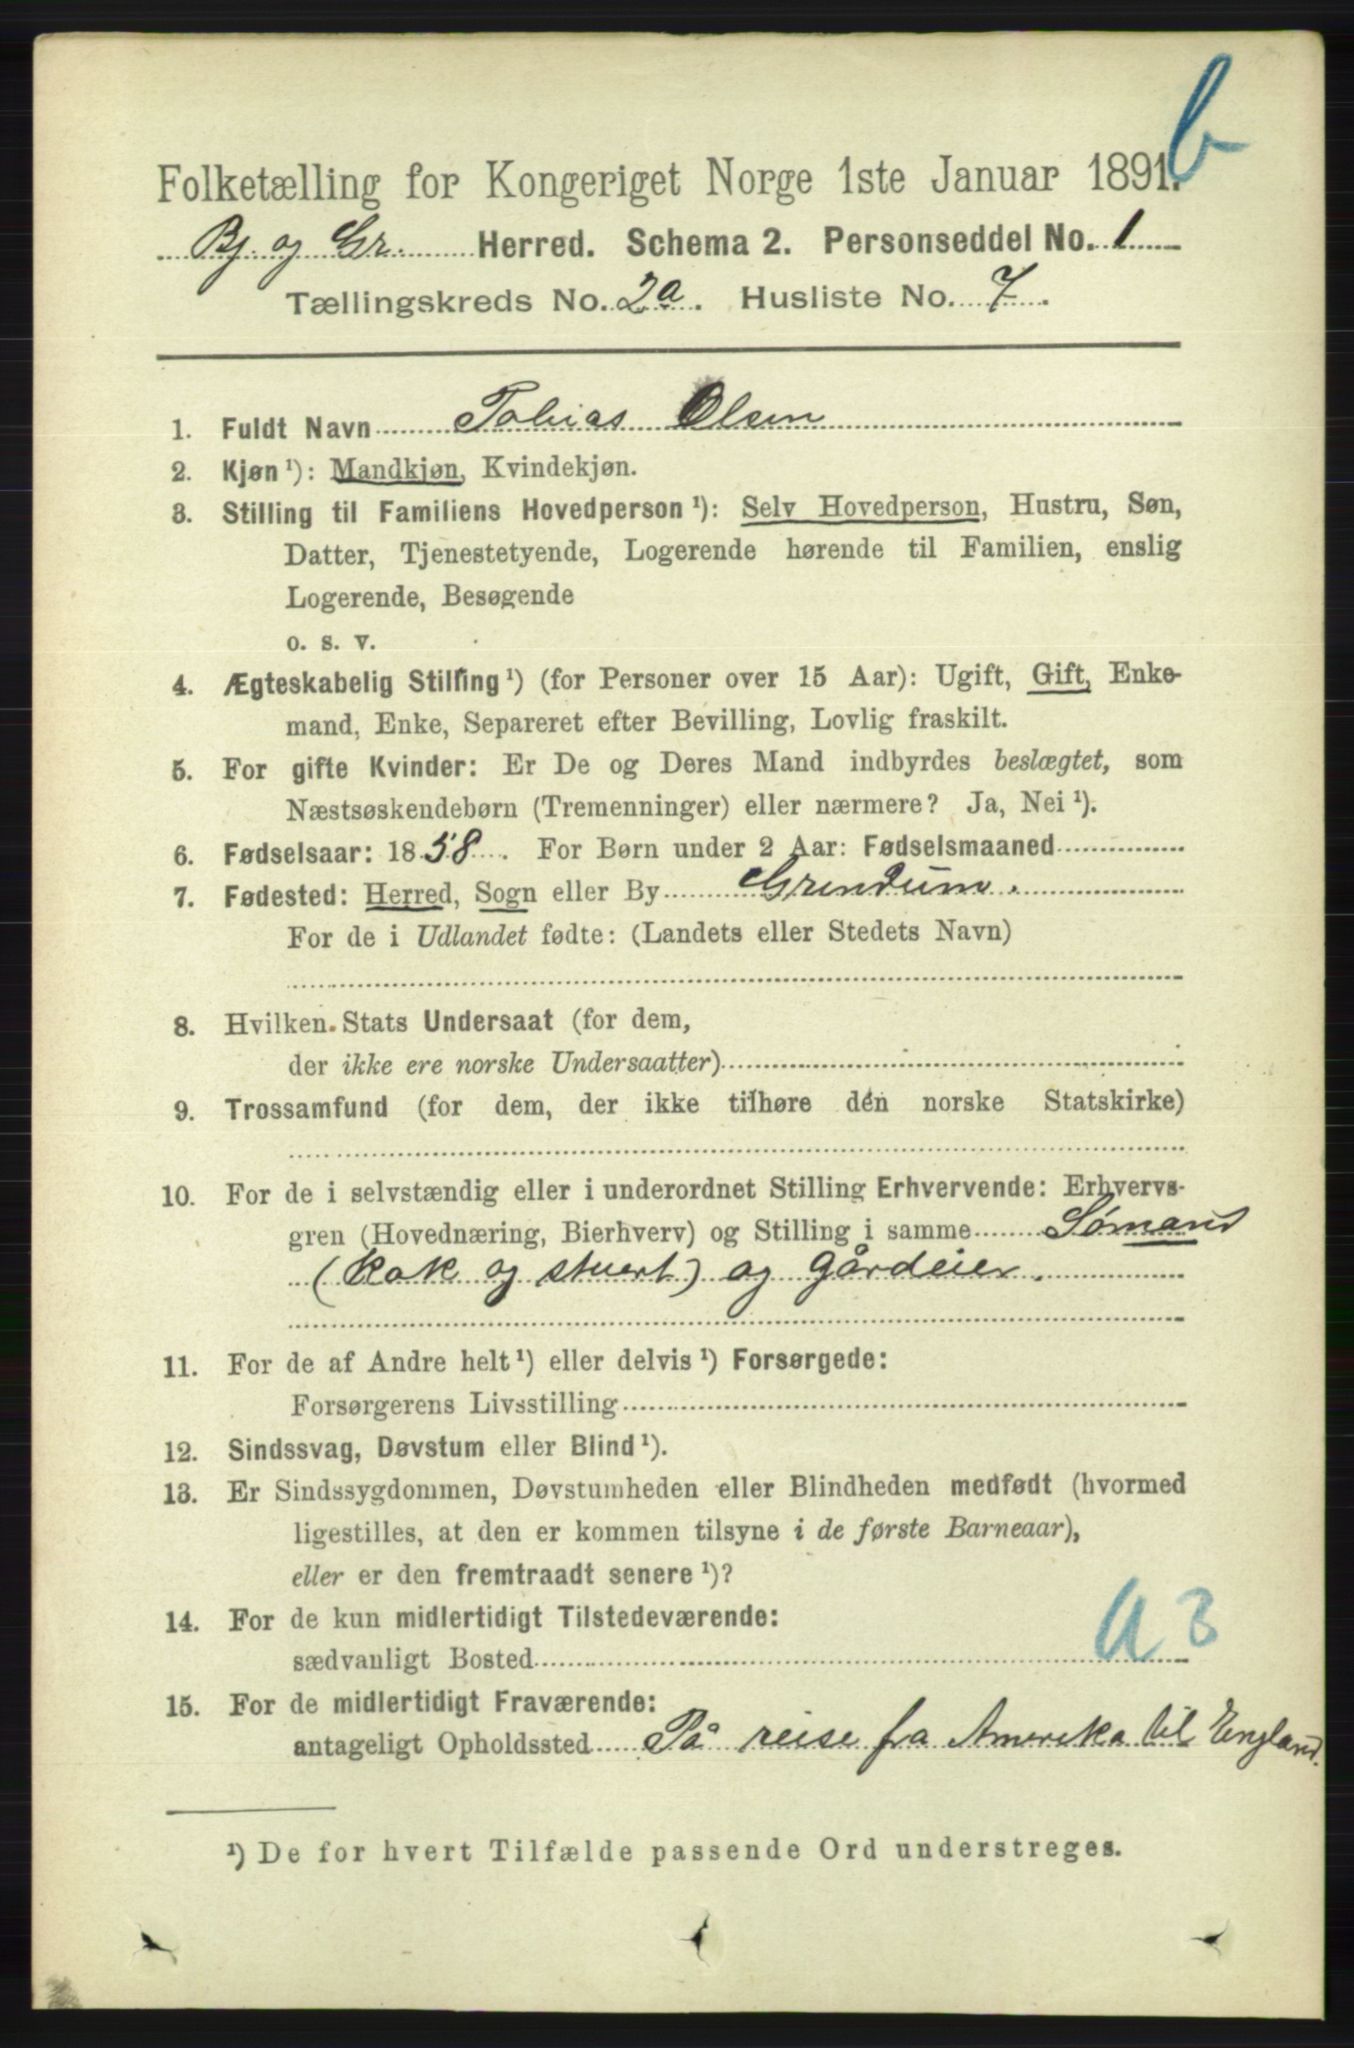 b
Folketælling for Kongeriget Norge 1ste Januar 1891.
Bj. og Gr. Herred. Schema 2. Personseddel No. 1
Tællingskreds No. 2a. Husliste No. 7.
1. Fuldt Navn Tobias Olsen
2. Kjøn ¹): Mandkjøn, Kvindekjøn.
3. Stilling til Familiens Hovedperson ¹): Selv Hovedperson, Hustru, Søn,
Datter, Tjenestetyende, Logerende hørende til Familien, enslig
Logerende, Besøgende
o. s. v.
4. Ægteskabelig Stilling ¹) (for Personer over 15 Aar): Ugift, Gift, Enke-
mand, Enke, Separeret efter Bevilling, Lovlig fraskilt.
5. For gifte Kvinder: Er De og Deres Mand indbyrdes beslægtet, som
Næstsøskendebørn (Tremenninger) eller nærmere? Ja, Nei ¹).
6. Fødselsaar: 1858. For Børn under 2 Aar: Fødselsmaaned
7. Fødested: Herred, Sogn eller By Grindum.
For de i Udlandet fødte: (Landets eller Stedets Navn)
8. Hvilken Stats Undersaat (for dem,
der ikke ere norske Undersaatter)
9. Trossamfund (for dem, der ikke tilhøre den norske Statskirke)
10. For de i selvstændig eller i underordnet Stilling Erhvervende: Erhvervs-
gren (Hovednæring, Bierhverv) og Stilling i samme Sømand
(kok og stuert) og gårdeier.
11. For de af Andre helt ¹) eller delvis ¹) Forsørgede:
Forsørgerens Livsstilling
12. Sindssvag, Døvstum eller Blind ¹).
13. Er Sindssygdommen, Døvstumheden eller Blindheden medfødt (hvormed
ligestilles, at den er kommen tilsyne i de første Barneaar),
eller er den fremtraadt senere ¹)?
14. For de kun midlertidigt Tilstedeværende:
sædvanligt Bosted a 3
15. For de midlertidigt Fraværende:
antageligt Opholdssted På reise fra Amerika til England.
¹) De for hvert Tilfælde passende Ord understreges.